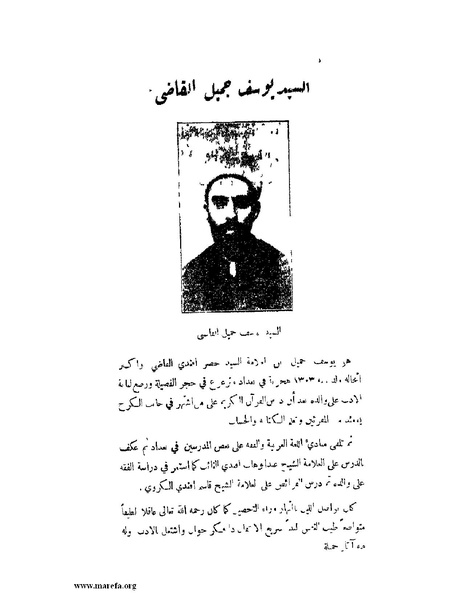 السيد يوسف جميل القاضى
السيد يوسف جميل القاضى
هو يوسف جميل بن العلامة السيد خضر افندي القاضي واكبر
انجاله ولد سنة ١٣٠٣ هجرية في بغداد وترعرع في حجر الفضيلة ورضع لبانة
الادب على والده بعد أن درس القرآن الكريم على من اشتهر في جانب الكرخ
يومئذ من المقرئين وتعلم الكتابة والحساب
ثم تلقى مبادئ اللغة العربية والفقه على بعض المدرسين في بغداد ثم عكف
بالدرس على العلامة الشيخ عبدالوهاب افندي النائب كما استمر في دراسة الفقه
على والده ثم درس الفرائض على العلامة الشيخ قاسم افندي
كان يواصل الليل بالنهار وراء التحصيل كما كان رحمه الله تعالى عاقلا لطيفاً
متواضعاً طيب النفس سريع الانتقال ذا فكر جوال واشتغل بالادب وله
فيه آثار جميلة
www.marefa.org